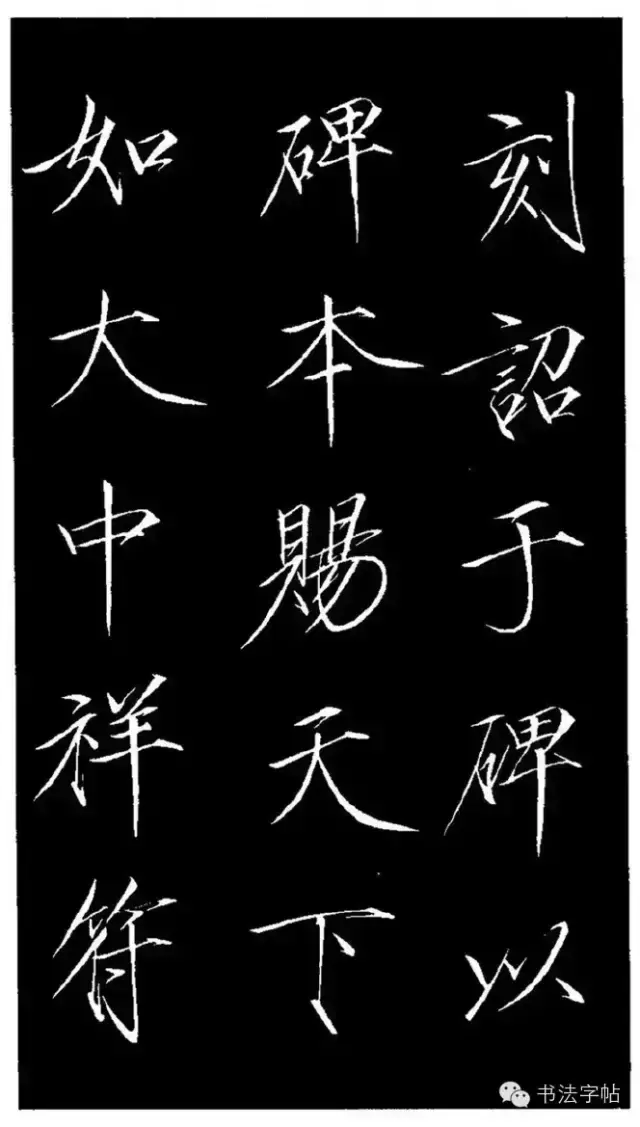 刻詔于碑以
碑本賜天下
如大中祥符
书法字帖